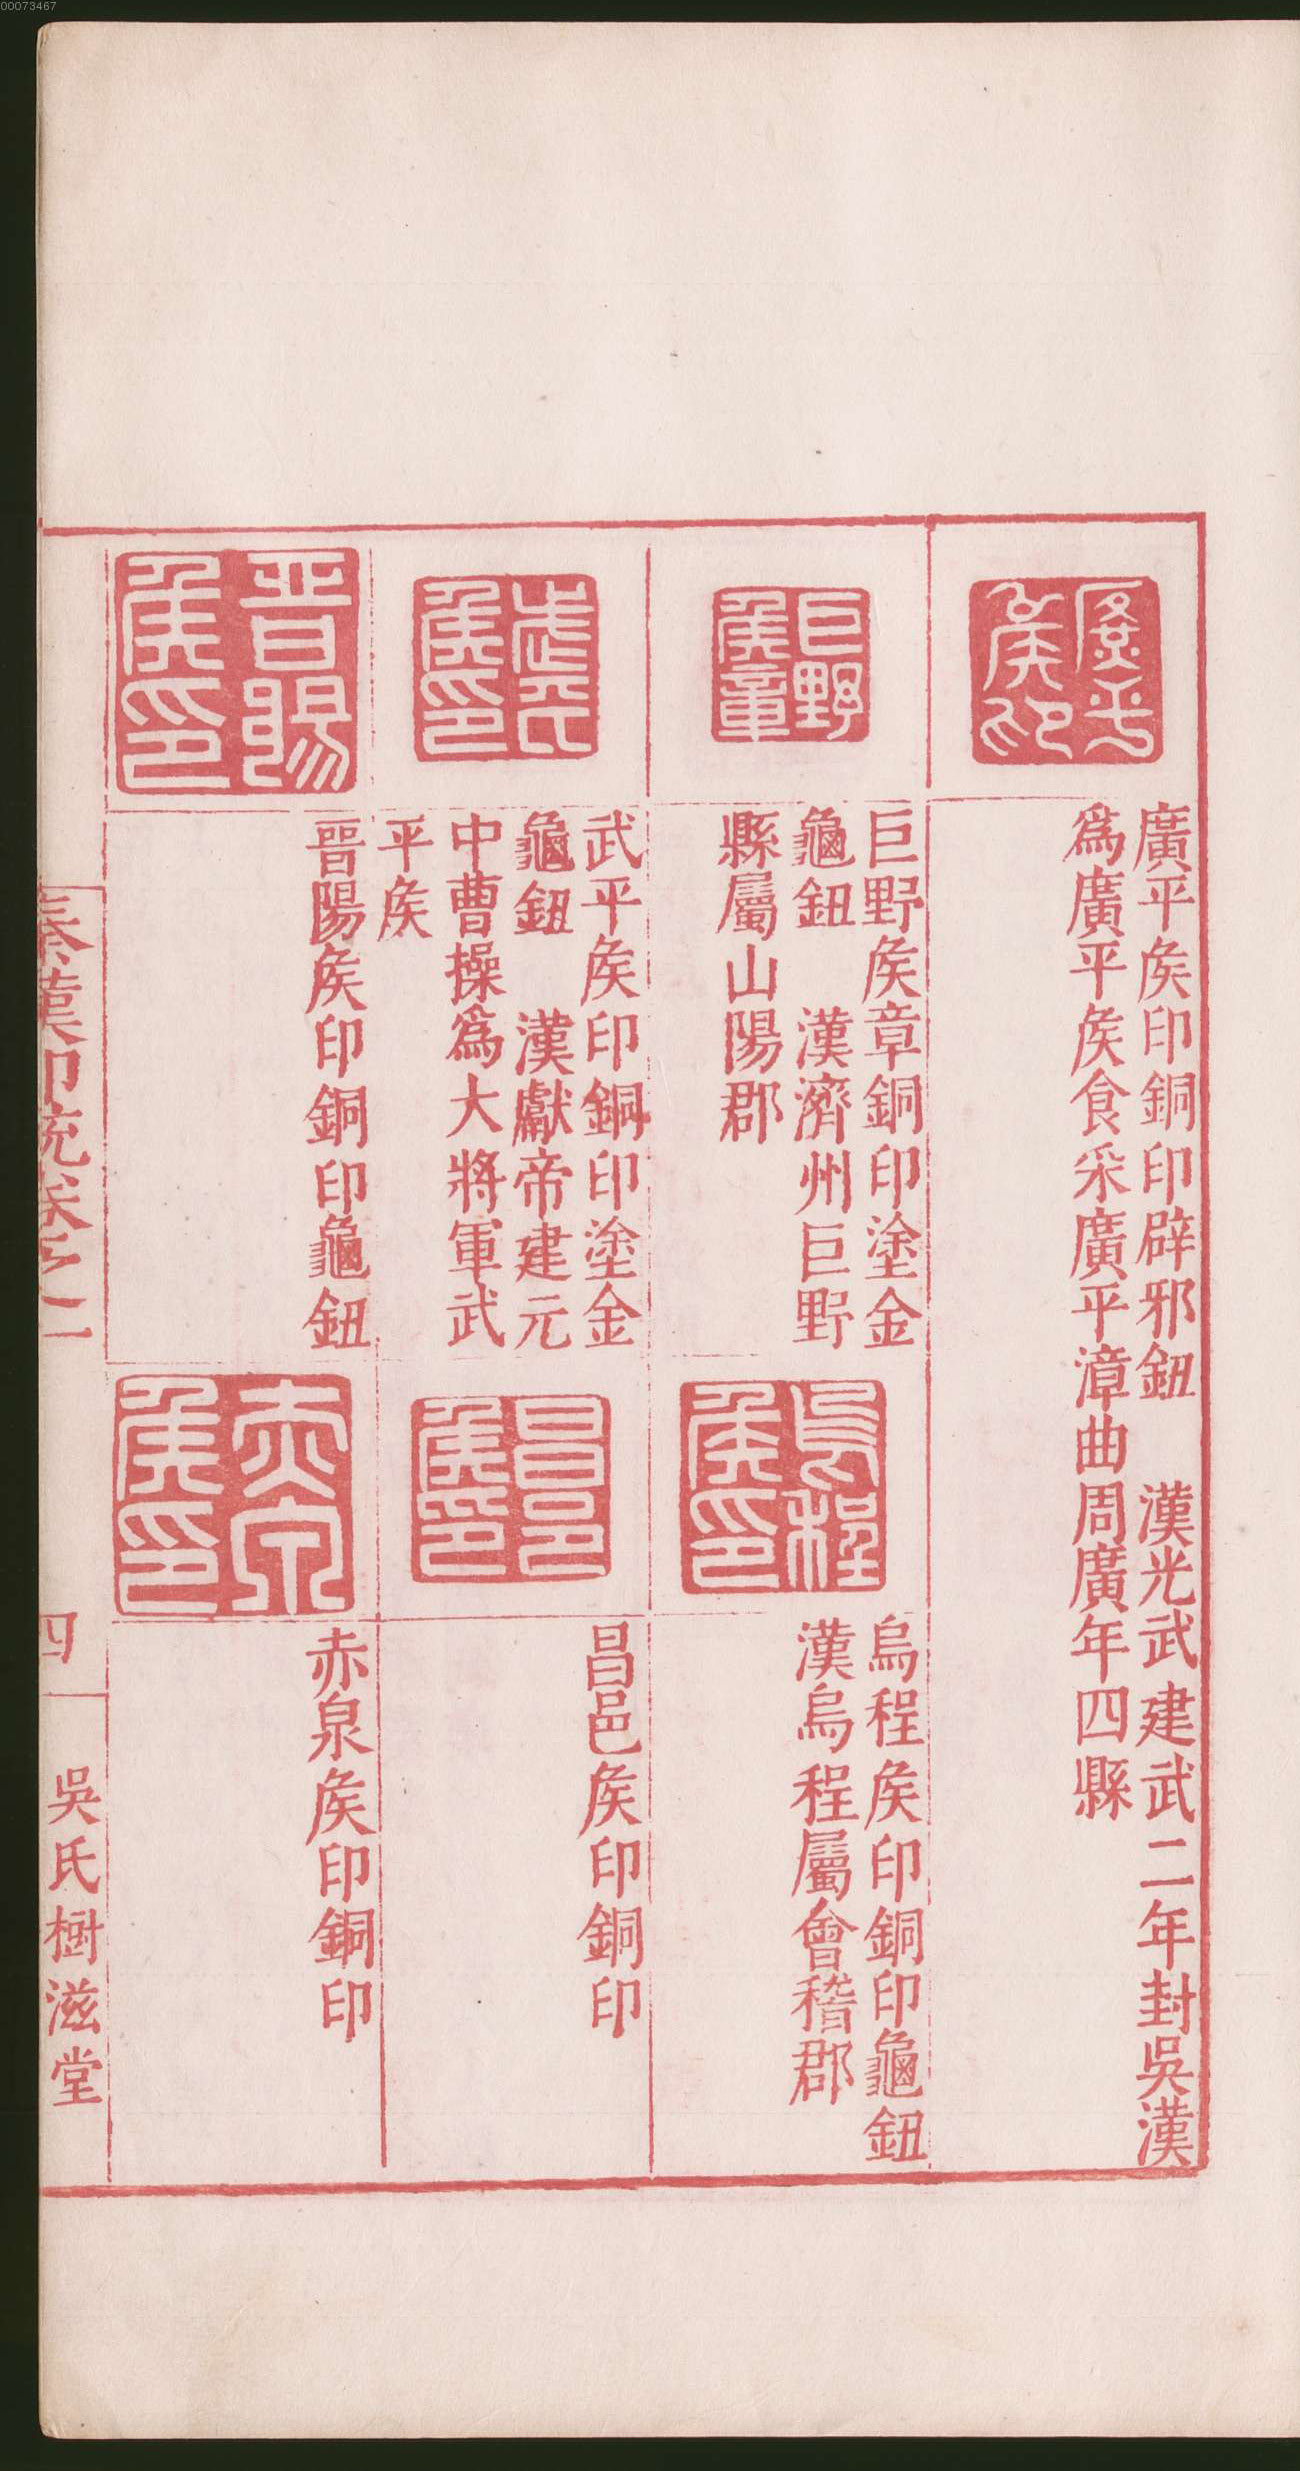 00073467
廣平侯印
廣平矦印銅印辟邪鈕　漢光武建武二年封吳漢
爲廣平矦食采廣平漳曲周廣年四縣
巨野侯章
巨野矦章銅印塗金
龜鈕　漢濟州巨野
縣屬山陽郡
烏程侯印
烏程矦印銅印龜鈕
漢烏程屬會稽郡
武平侯印
武平矦印銅印塗金
龜鈕　漢獻帝建元
中曹操爲大將軍武
平矦
昌邑侯印
昌邑矦印銅印
晉陽侯印
晋陽矦印銅印龜鈕
赤泉侯印
赤泉矦印銅印
秦漢印統卷之二
四
吳氏樹滋堂